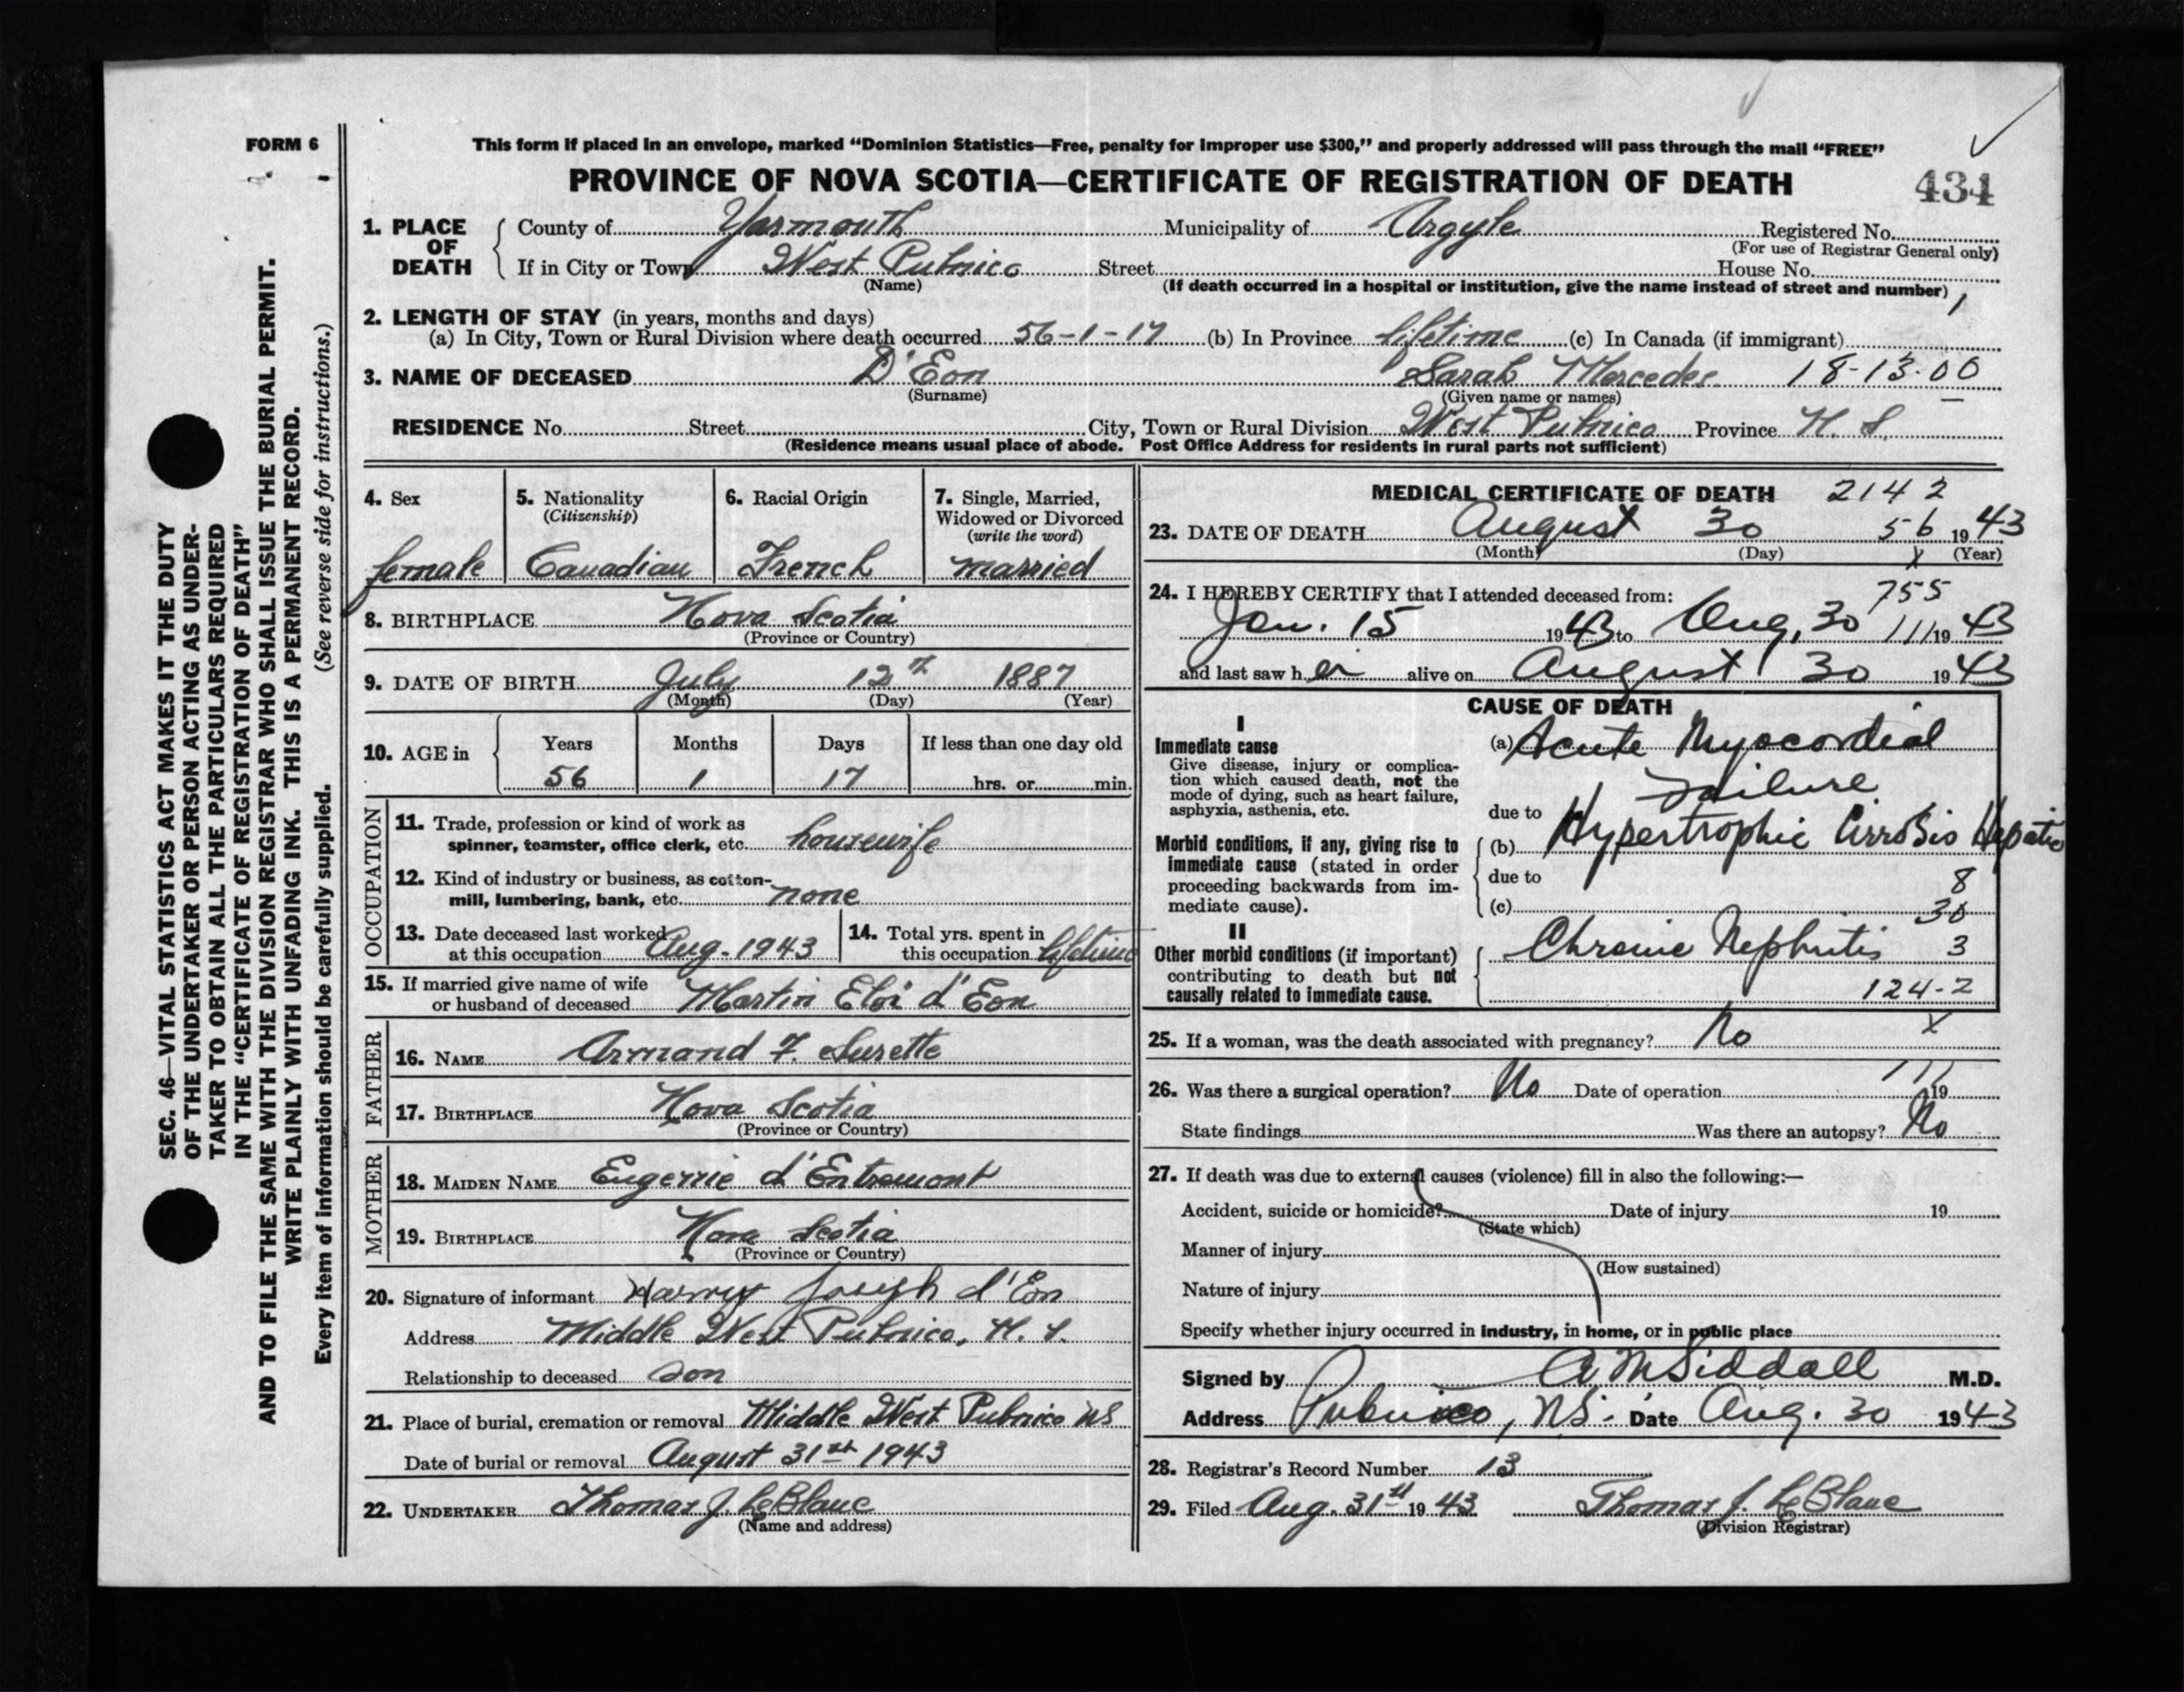 FORM 6
This form if placed in an envelope, marked "Dominion Statistics—Free, penalty for improper use $300," and properly addressed will pass through the mail "FREE"
PROVINCE OF NOVA SCOTIA—CERTIFICATE OF REGISTRATION OF DEATH
434
1. PLACE OF DEATH
County of Yarmouth Municipality of Argyle Registered No.
(For use of Registrar General only)
If in City or Town West Pubnico Street House No.
(Name) (If death occurred in a hospital or institution, give the name instead of street and number) 1
2. LENGTH OF STAY (in years, months and days)
(a) In City, Town or Rural Division where death occurred 56-1-17 (b) In Province lifetime (c) In Canada (if immigrant)
3. NAME OF DECEASED D'Eon Sarah Mercedes 18-13-00
(Surname) (Given name or names)
RESIDENCE No. Street City, Town or Rural Division West Pubnico Province N. S.
(Residence means usual place of abode. Post Office Address for residents in rural parts not sufficient)
4. Sex
female
5. Nationality
(Citizenship)
Canadian
6. Racial Origin
French
7. Single, Married,
Widowed or Divorced
(write the word)
married
8. BIRTHPLACE Nova Scotia
(Province or Country)
9. DATE OF BIRTH July 12th 1887
(Month) (Day) (Year)
10. AGE in Years Months Days If less than one day old
56 1 17 hrs. or min.
OCCUPATION
11. Trade, profession or kind of work as
spinner, teamster, office clerk, etc. housewife
12. Kind of industry or business, as cotton-
mill, lumbering, bank, etc. none
13. Date deceased last worked
at this occupation Aug. 1943
14. Total yrs. spent in
this occupation lifetime
15. If married give name of wife
or husband of deceased Martin Eloi d'Eon
FATHER
16. NAME Armand F. Surette
17. BIRTHPLACE Nova Scotia
(Province or Country)
MOTHER
18. MAIDEN NAME Eugenie d'Entremont
19. BIRTHPLACE Nova Scotia
(Province or Country)
20. Signature of informant Harvey Joseph d'Eon
Address Middle West Pubnico, N. S.
Relationship to deceased son
21. Place of burial, cremation or removal Middle West Pubnico NS
Date of burial or removal August 31st 1943
22. UNDERTAKER Thomas J. LeBlanc
(Name and address)
MEDICAL CERTIFICATE OF DEATH 2142
23. DATE OF DEATH August 30 56 1943
(Month) (Day) x (Year)
24. I HEREBY CERTIFY that I attended deceased from: 755
Jan. 15 1943 to Aug. 30 111 1943
and last saw her alive on August 30 1943
CAUSE OF DEATH
I
Immediate cause
Give disease, injury or complica-
tion which caused death, not the
mode of dying, such as heart failure,
asphyxia, asthenia, etc.
(a) Acute Myocordial
Failure
due to
Morbid conditions, if any, giving rise to
immediate cause (stated in order
proceeding backwards from im-
mediate cause).
(b) Hypertrophic Cirrosis Hepatic
due to 8
(c) 30
II
Other morbid conditions (if important)
contributing to death but not
causally related to immediate cause.
Chronic Nephritis 3
124-2
25. If a woman, was the death associated with pregnancy? No x
26. Was there a surgical operation? No Date of operation 111 19
State findings Was there an autopsy? No
27. If death was due to external causes (violence) fill in also the following:—
Accident, suicide or homicide? Date of injury 19
(State which)
Manner of injury
(How sustained)
Nature of injury
Specify whether injury occurred in industry, in home, or in public place
Signed by A M Siddall M.D.
Address Pubnico, N.S. Date Aug. 30 1943
28. Registrar's Record Number 13
29. Filed Aug. 31st 1943 Thomas J. LeBlanc
(Division Registrar)
SEC. 46—VITAL STATISTICS ACT MAKES IT THE DUTY
OF THE UNDERTAKER OR PERSON ACTING AS UNDER-
TAKER TO OBTAIN ALL THE PARTICULARS REQUIRED
IN THE "CERTIFICATE OF REGISTRATION OF DEATH"
AND TO FILE THE SAME WITH THE DIVISION REGISTRAR WHO SHALL ISSUE THE BURIAL PERMIT.
WRITE PLAINLY WITH UNFADING INK. THIS IS A PERMANENT RECORD.
Every item of information should be carefully supplied. (See reverse side for instructions.)